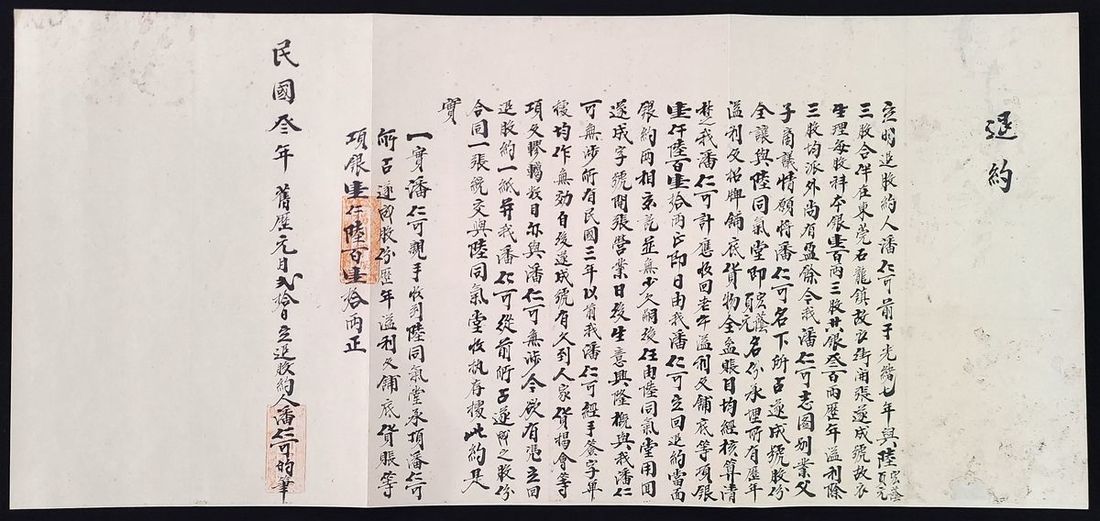 退約
立明退股約人潘仁可前于光緒七年與陸宏蔭頁元
三股合伴在東莞石龍鎮故衣街開張遂成號故衣
生理每股科本銀壹百両三股共銀叁百両歷年溢利除
三股均派外尚有盈餘今我潘仁可志圖別業父
子商議情愿將潘仁可名下所占遂成號股份
全讓與陸同氣堂即宏蔭頁元名份承理所有歷年
溢利及招牌鋪底貨物全盆賬目均經核算清
楚我潘仁可計應收回老本溢利及鋪底等項銀
壹仟陸百壹拾両正即日由我潘仁可立回退約當面
銀約両相交訖並無少欠嗣後任由陸同氣堂用回
遂成字號開張營業日後生意興隆概與我潘仁
可無涉所有民國三年以前我潘仁可經手簽字單
據均作無効自後遂成號有欠到人家貨揭會等
項及轇轕数目亦與潘仁可無涉今欲有憑立回
退股約一紙并我潘仁可從前所占遂成之股份
合同一張統交與陸同氣堂收執存據此約是
實
一實潘仁可親手收到陸同氣堂承頂潘仁可
所占遂成股份歷年溢利及鋪底貨賬等
項銀壹仟陸百壹拾両正
民國叁年舊歷元月弍拾日立退股約人潘仁可的筆